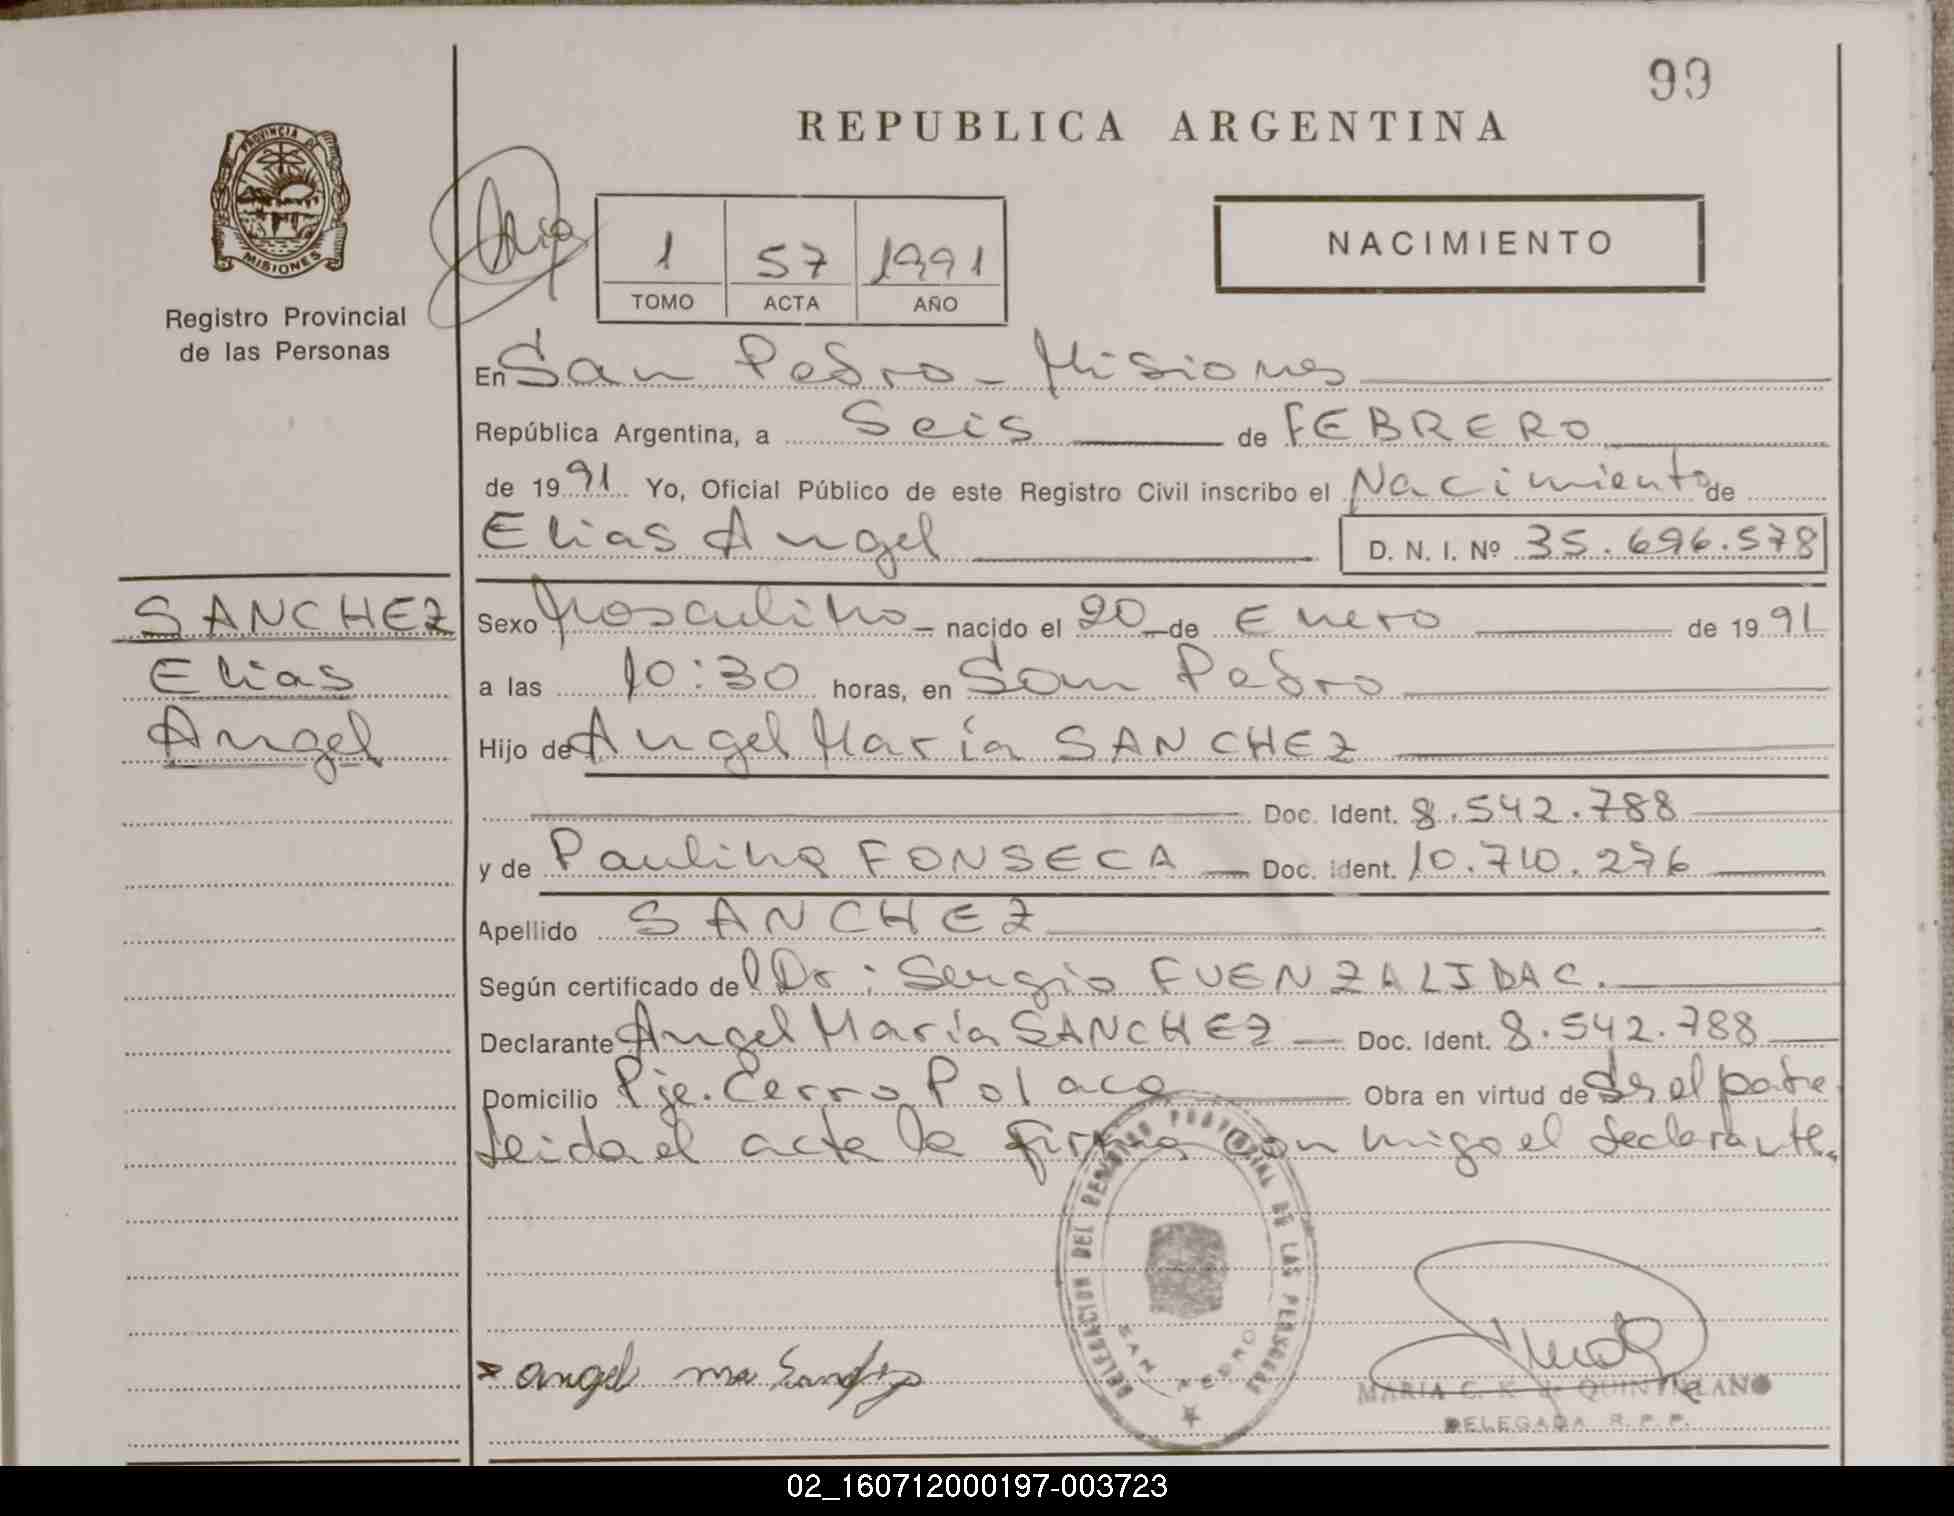 99
REPUBLICA ARGENTINA
PROVINCIA DE
MISIONES
Registro Provincial
de las Personas
1 57 1991
TOMO ACTA AÑO
NACIMIENTO
En San Pedro - Misiones
República Argentina, a Seis de FEBRERO
de 1991 Yo, Oficial Público de este Registro Civil inscribo el Nacimiento de
Elias Angel D. N. I. Nº 35.696.578
SANCHEZ
Elias
Angel
Sexo Masculino - nacido el 20 de Enero de 1991
a las 10:30 horas, en San Pedro
Hijo de Angel María SANCHEZ
Doc. Ident. 8.542.788
y de Paulina FONSECA Doc. Ident. 10.710.276
Apellido SANCHEZ
Según certificado del Dr: Sergio FUENZALIDA C.
Declarante Angel María SANCHEZ Doc. Ident. 8.542.788
Domicilio Pje. Cerro Polaco Obra en virtud de Ser el padre
Leida el acta la firma con migo el declarante.
DELEGACION DEL REGISTRO PROVINCIAL DE LAS PERSONAS
SAN PEDRO
x angel ma Sanchez
MARIA C. K. de QUINTILANO
DELEGADA R. P. P.
02_160712000197-003723